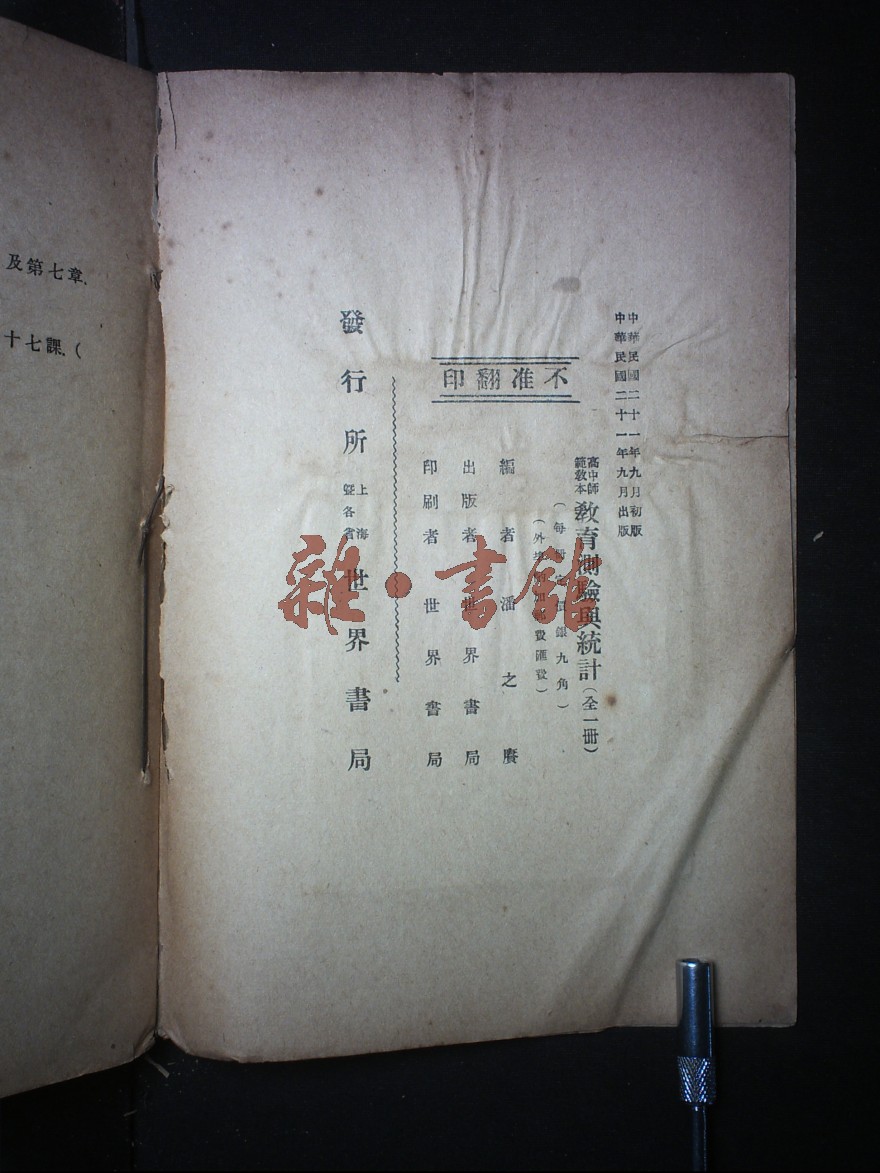 中華民國二十一年九月初版
中華民國二十一年九月出版
高中師
範教本
教育測驗與統計(全一冊)
(每冊定價銀九角)
(外埠酌加郵費匯費)
不准翻印
編者 潘之賡
出版者 世界書局
印刷者 世界書局
發行所
上海
暨各省
世界書局
及第七章.
十七課.(
雜·書館